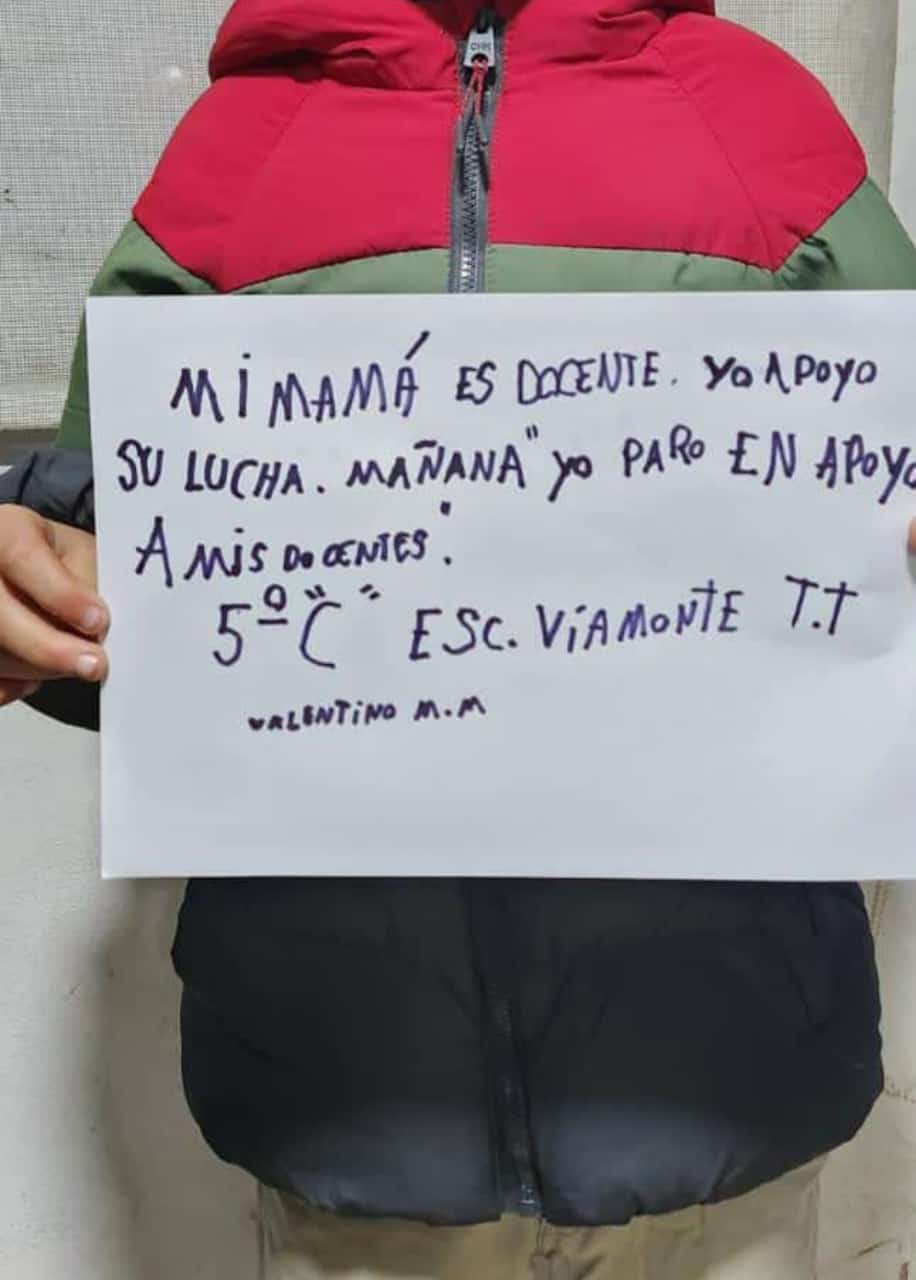 MI MAMÁ ES DOCENTE. YO APOYO
SU LUCHA. MAÑANA "YO PARO EN APOYO
A MIS DOCENTES".
5º "C" ESC. VIAMONTE T.T
VALENTINO M.M